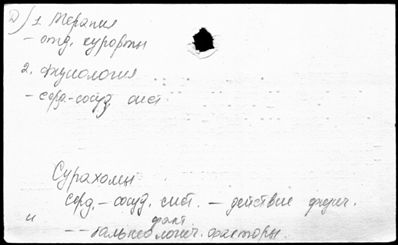 2) 1. Терапия
- отд. курорты
2. Физиология
- серд.-сосуд. сист.
Сураханы
серд. - сосуд. сист. - действие физич.
факт.
и -- бальнеологич. факторы.